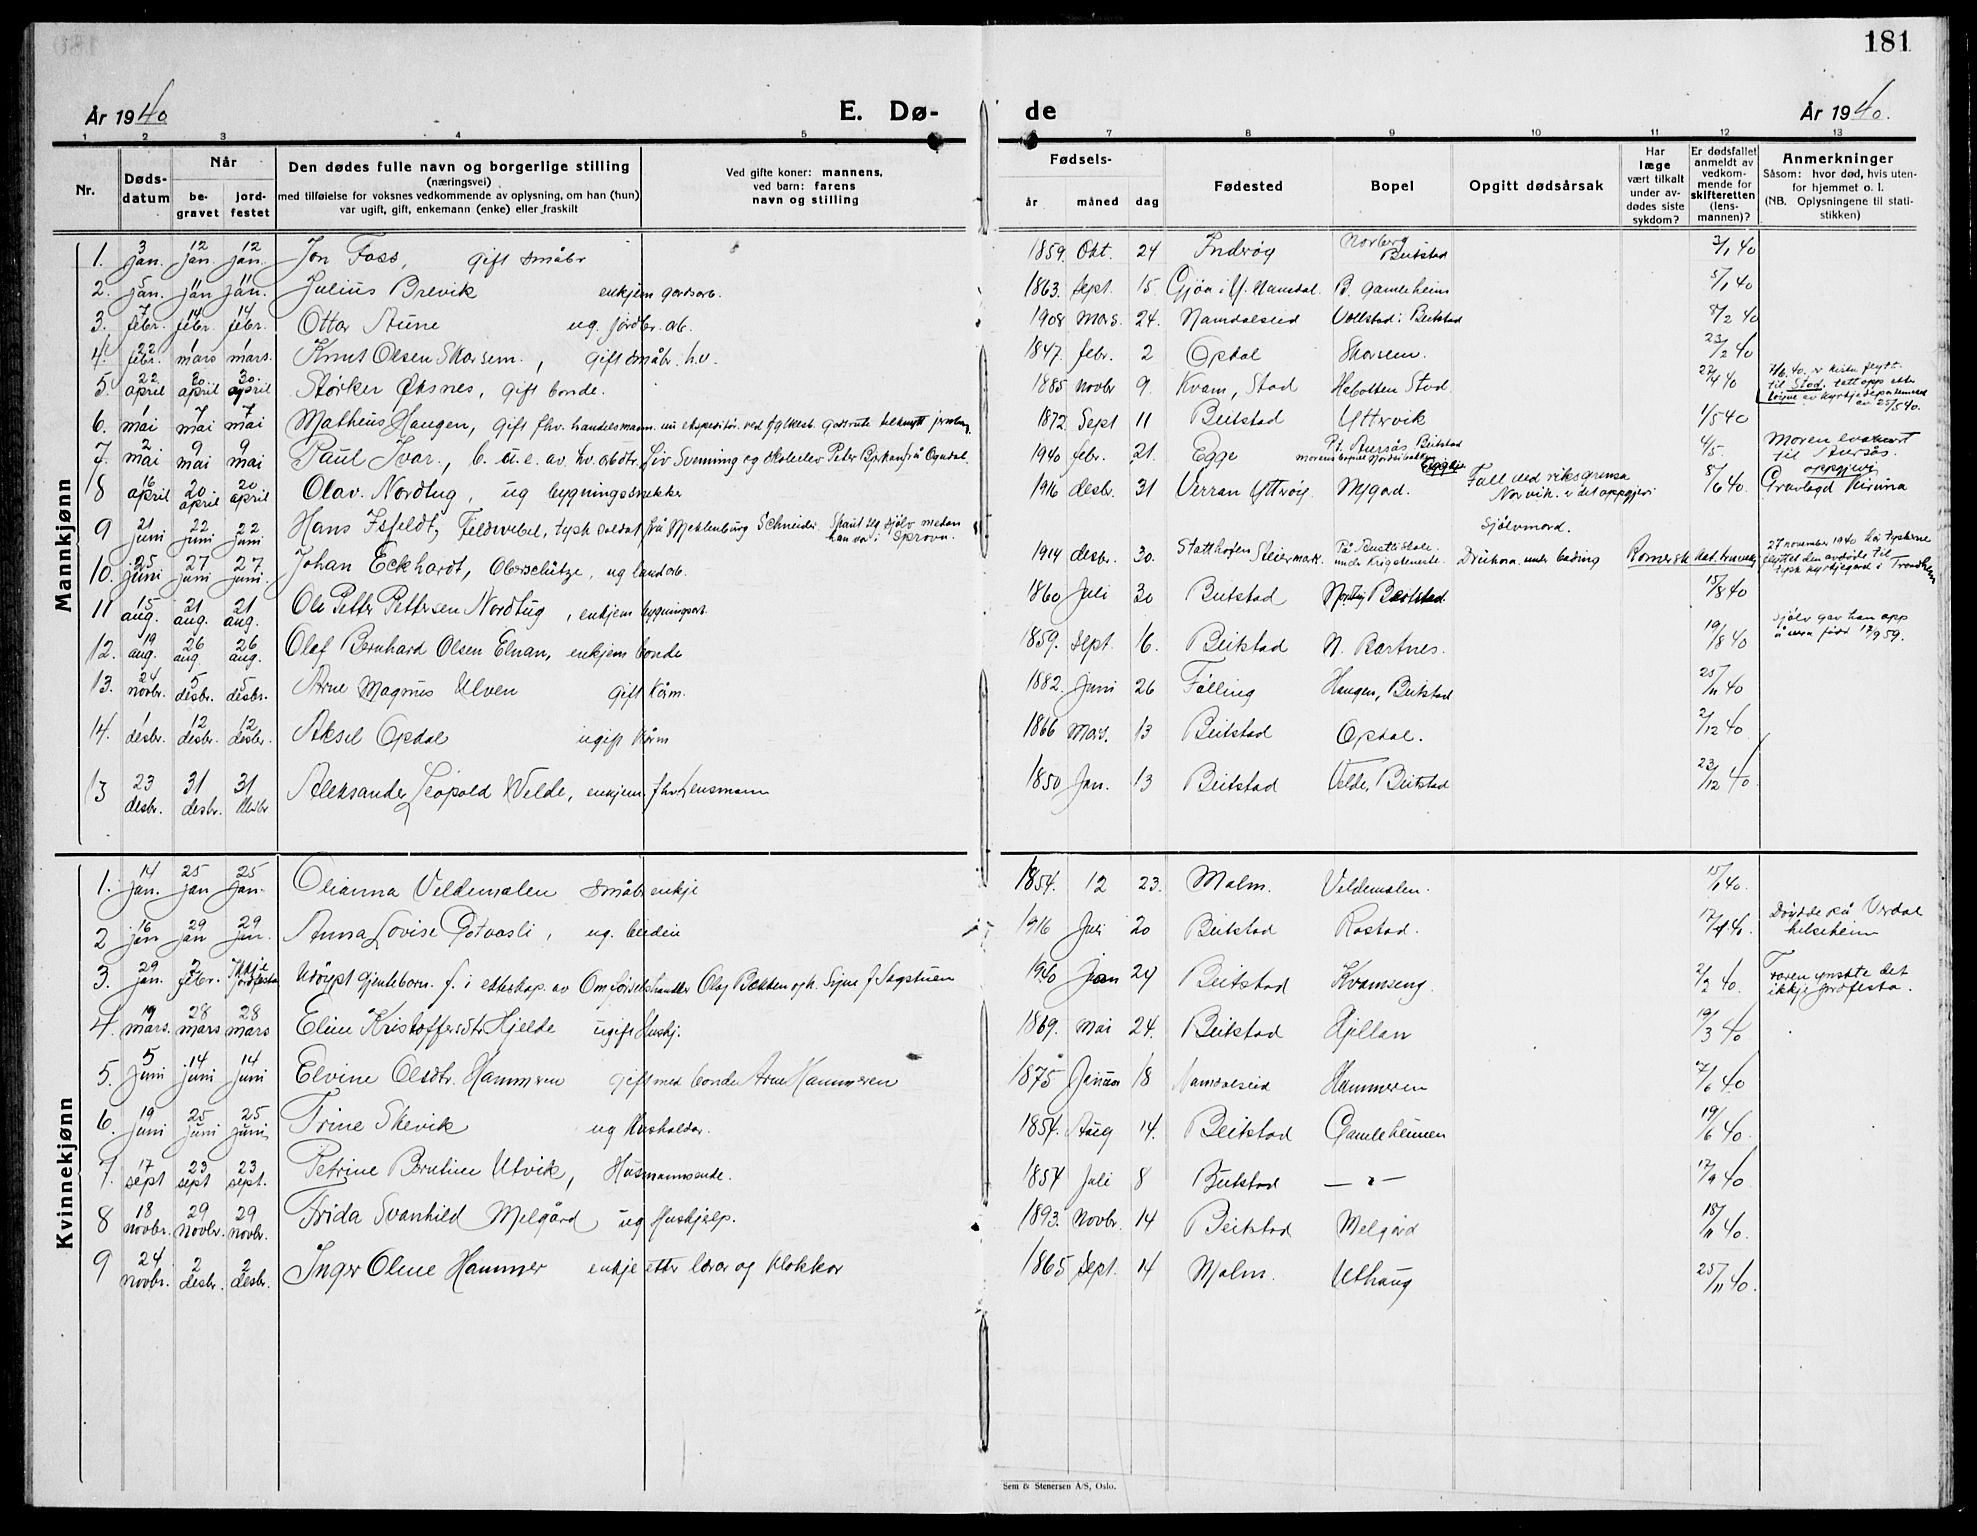 181
År 1940
E. Dø-
de
År 1940.
1 2 3 4 5 6 7 8 9 10 11 12 13
Nr.
Døds-
datum
Når
be-
gravet
jord-
festet
Den dødes fulle navn og borgerlige stilling
(næringsvei)
med tilføielse for voksnes vedkommende av oplysning, om han (hun)
var ugift, gift, enkemann (enke) eller fraskilt
Ved gifte koner: mannens,
ved barn: farens
navn og stilling
Fødsels-
år måned dag
Fødested
Bopel
Opgitt dødsårsak
Har
læge
vært tilkalt
under av-
dødes siste
sykdom?
Er dødsfallet
anmeldt av
vedkom-
mende for
skifteretten
(lens-
mannen)?
Anmerkninger
Såsom: hvor død, hvis uten-
for hjemmet o. l.
(NB. Oplysningene til stati-
stikken)
Mannkjønn
1. 3 jan. 12 jan. 12 jan. Jon Foss, gift småbr 1859. Okt. 24 Inderøy Norberg Beitstad 3/1 40
2. 5 jan. 11 jan 11 jan. Julius Brevik enkjem gardsarb. 1863. Sept. 15. Gjøa i Y. Namdal. B. gamleheim 5/1 40
3. 7 febr. 14 febr. 14 febr. Ottar Aune ug. jordbr. arb. 1908 Mars. 24. Namdalseid Vollstad i Beitstad 8/2 40
4. 22 febr. 1 mars 1 mars. Knut Olsen Skorsem, gift småbr. h.v. 1847. febr. 2 Opdal Skorsem. 23/2 40
5. 22 april 30 april 30 april Størker Øksnes, gift bonde. 1885 Novbr 9. Kvam, Stod Habotten Stod. 27/4 40 til Stod. tatt opp etter løyve av kyrkjedepartementet av 25/5 40.
6. 1 mai 7 mai 7 mai Matheus Haugen, gift fhv. handelsmann. nu ekspeditør ved 1872 Sept 11 Beitstad Yttervik 1/5 40
7. 2 mai 9 mai 9 mai Paul Ivar, b. u. e. av hv. arbdtr. Liv Svenning og skoleelev Peter Bjerkan frå Ogndal. 1940 febr. 21. Egge Pt. Aursås, Beitstad 4/5 Moren evakuert til Aursås.
8 16 april 20 april 20 april Olav Nordtug, ug bygningssnekker 1916 desbr. 31 Verran Ytterøy Nygard. Fall ved riksgrensa Norvik. er det oppgjevi 8/6 40. oppgjevi Gravlagd Kiruna
9 21 juni 22 juni 22 juni Hans Isfeldt, Feldwebel, tysk soldat frå Meklenburg Schneider. Skaut seg sjølv medan han var i Sprova. Sjølvmord.
10. 25 juni 27 juni 27 juni. Johan Eckhardt, Oberschütze, ug landarb. 1914 desbr. 30. Statthofen Steiermark. På Austli skole. under krigsteneste. Drukna under bading 27 november 1940 har tyskerne flyttet den avdøde til tysk kyrkjegard i Trondheim
11 15 aug. 21 aug. 21 aug. Ole Petter Pettersen Nordtug, enkjem bygningsarb. 1860 Juli 30 Beitstad 15/8 40
12. 19 aug. 26 aug 26 aug. Olaf Bernhard Olsen Elnan, enkjem bonde 1859. Sept. 16. Beitstad N. Bartnes. 19/8 40 Sjølv gav han opp å vera född 17/9 59.
13. 24 novbr. 5 desbr. 5 desbr. Arne Magnus Ulven gift kårm. 1882. Juni 26 Følling Haugen, Beitstad 25/11 40
14. 1 desbr. 12 desbr. 12 desbr. Aksel Opdal ugift kårm 1866 Mars. 13 Beitstad Opdal. 2/12 40
13 23 desbr. 31 desbr. 31 desbr Aleksander Leopold Welde, enkjem. fhv Lensmann 1850 Jan. 13 Beitstad Velde, Beitstad 23/12 40
Kvinnekjønn
1. 14 jan. 25 jan 25 jan. Olianna Veldemalen småbr enkje 1854. 12 23. Malm. Veldemalen. 15/1 40.
2 16 jan 29 jan 29 jan. Anna Lovise Gotvasli, ug. budeie 1916 Juli 20 Beitstad Rostad. 17/1 40. Döydde på Verdal helseheim
3. 29 jan. 2 febr. Ikkje jordfesta Udøypt gjenteborn. f. i ekteskap av Omførselshandler Olaf Bekken og h. Signe f. Sagstuen 1940 Jan 24 Beitstad Kvamseng. 2/2 40. Faren ynskte det ikkje jordfesta.
4. 19 mars. 28 mars 28 mars Eline Kristoffersdtr Hjelde ugift Hushj. 1869. Mai 24. Beitstad Hjellan 19/3 40
5. 5 juni 14 juni 14 juni Elvine Olsdtr. Hammeren gift med bonde Arne Hammeren 1875 Januar 18 Namdalseid Hammeren 7/6 40
6. 19 juni 25 juni 25 juni Trine Skevik ug Husholder. 1854. Aug 14. Beitstad Gamleheimen 19/6 40.
7. 17 sept 23 sept 23 sept. Petrine Berntine Utvik, Husmannsenke. 1854 Juli 8 Beitstad — " — 17/9 40
8 18 novbr. 29 novbr. 29 novbr. Frida Svanhild Melgård ug Hushjelp. 1893. Novbr. 14 Beitstad Melgård 18/11 40.
9 24 novbr. 2 desbr. 2 desbr. Inger Oline Hammer enkje etter lærar og klokkar 1865 Sept. 14 Malm. Uthaug 25/11 40.
Sem & Stenersen A/S, Oslo.